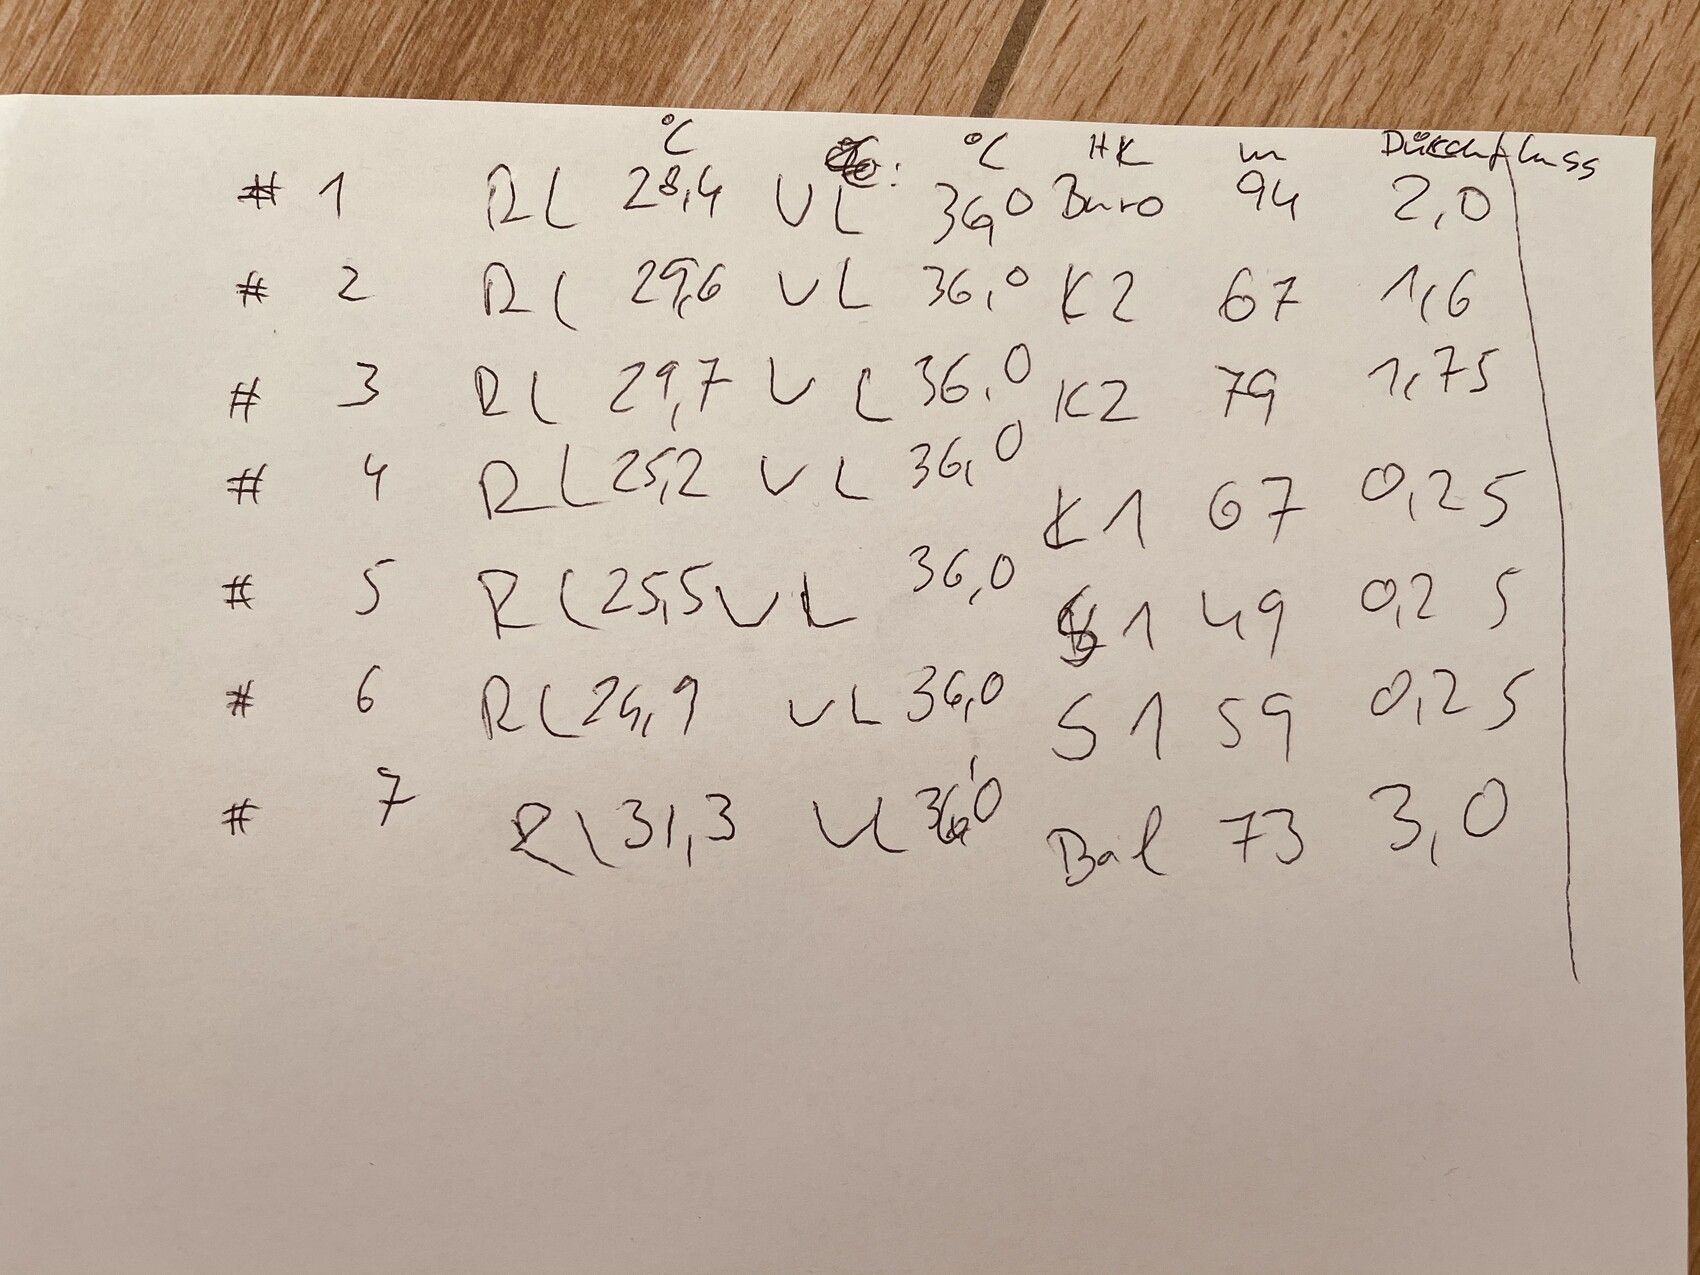 °C °C HK m Durchfluss
# 1 RL 28,4 VL 36,0 Büro 94 2,0
# 2 RL 29,6 VL 36,0 K2 67 1,6
# 3 RL 29,7 VL 36,0 K2 79 1,75
# 4 RL 25,2 VL 36,0 K1 67 0,25
# 5 RL 25,5 VL 36,0 S1 49 0,25
# 6 RL 24,9 VL 36,0 S1 59 0,25
# 7 RL 31,3 VL 36,0 Bad 73 3,0